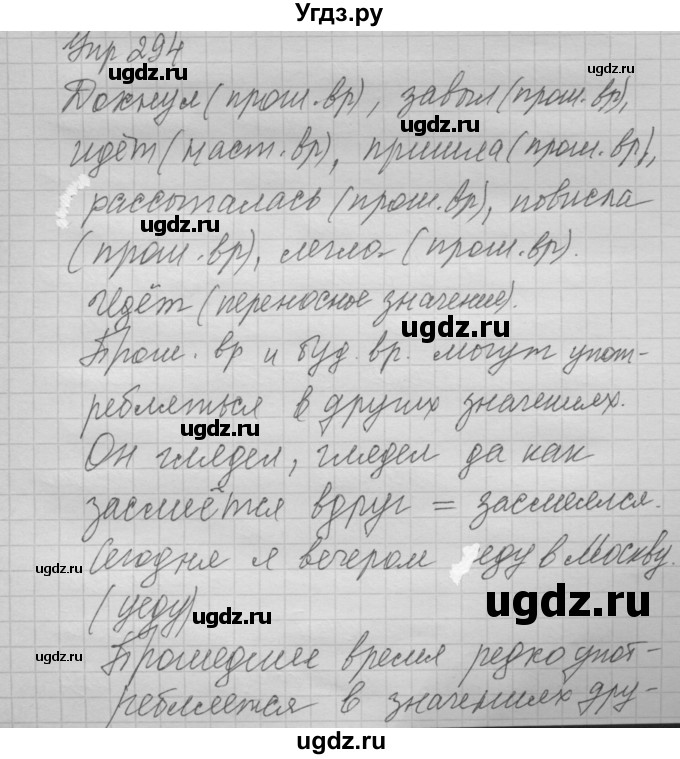 Угдз.ру
Упр 294
Докнул (прош.вр), завыл (прош.вр),
идёт (наст.вр), пришла (прош.вр),
рассыпалась (прош.вр), повисла
(прош.вр), легла (прош.вр).
Идёт (переносное значение).
Прош. вр и буд. вр. могут упот-
ребляться в других значениях.
Он глядел, глядел да как
засмеётся вдруг = засмеялся.
Сегодня я вечером еду в Москву.
(уеду)
Прошедшее время редко упот-
ребляется в значениях дру-
ugdz.ru
ugdz.ru
ugdz.ru
ugdz.ru
ugdz.ru
ugdz.ru
ugdz.ru
ugdz.ru
ugdz.ru
ugdz.ru
ugdz.ru
ugdz.ru